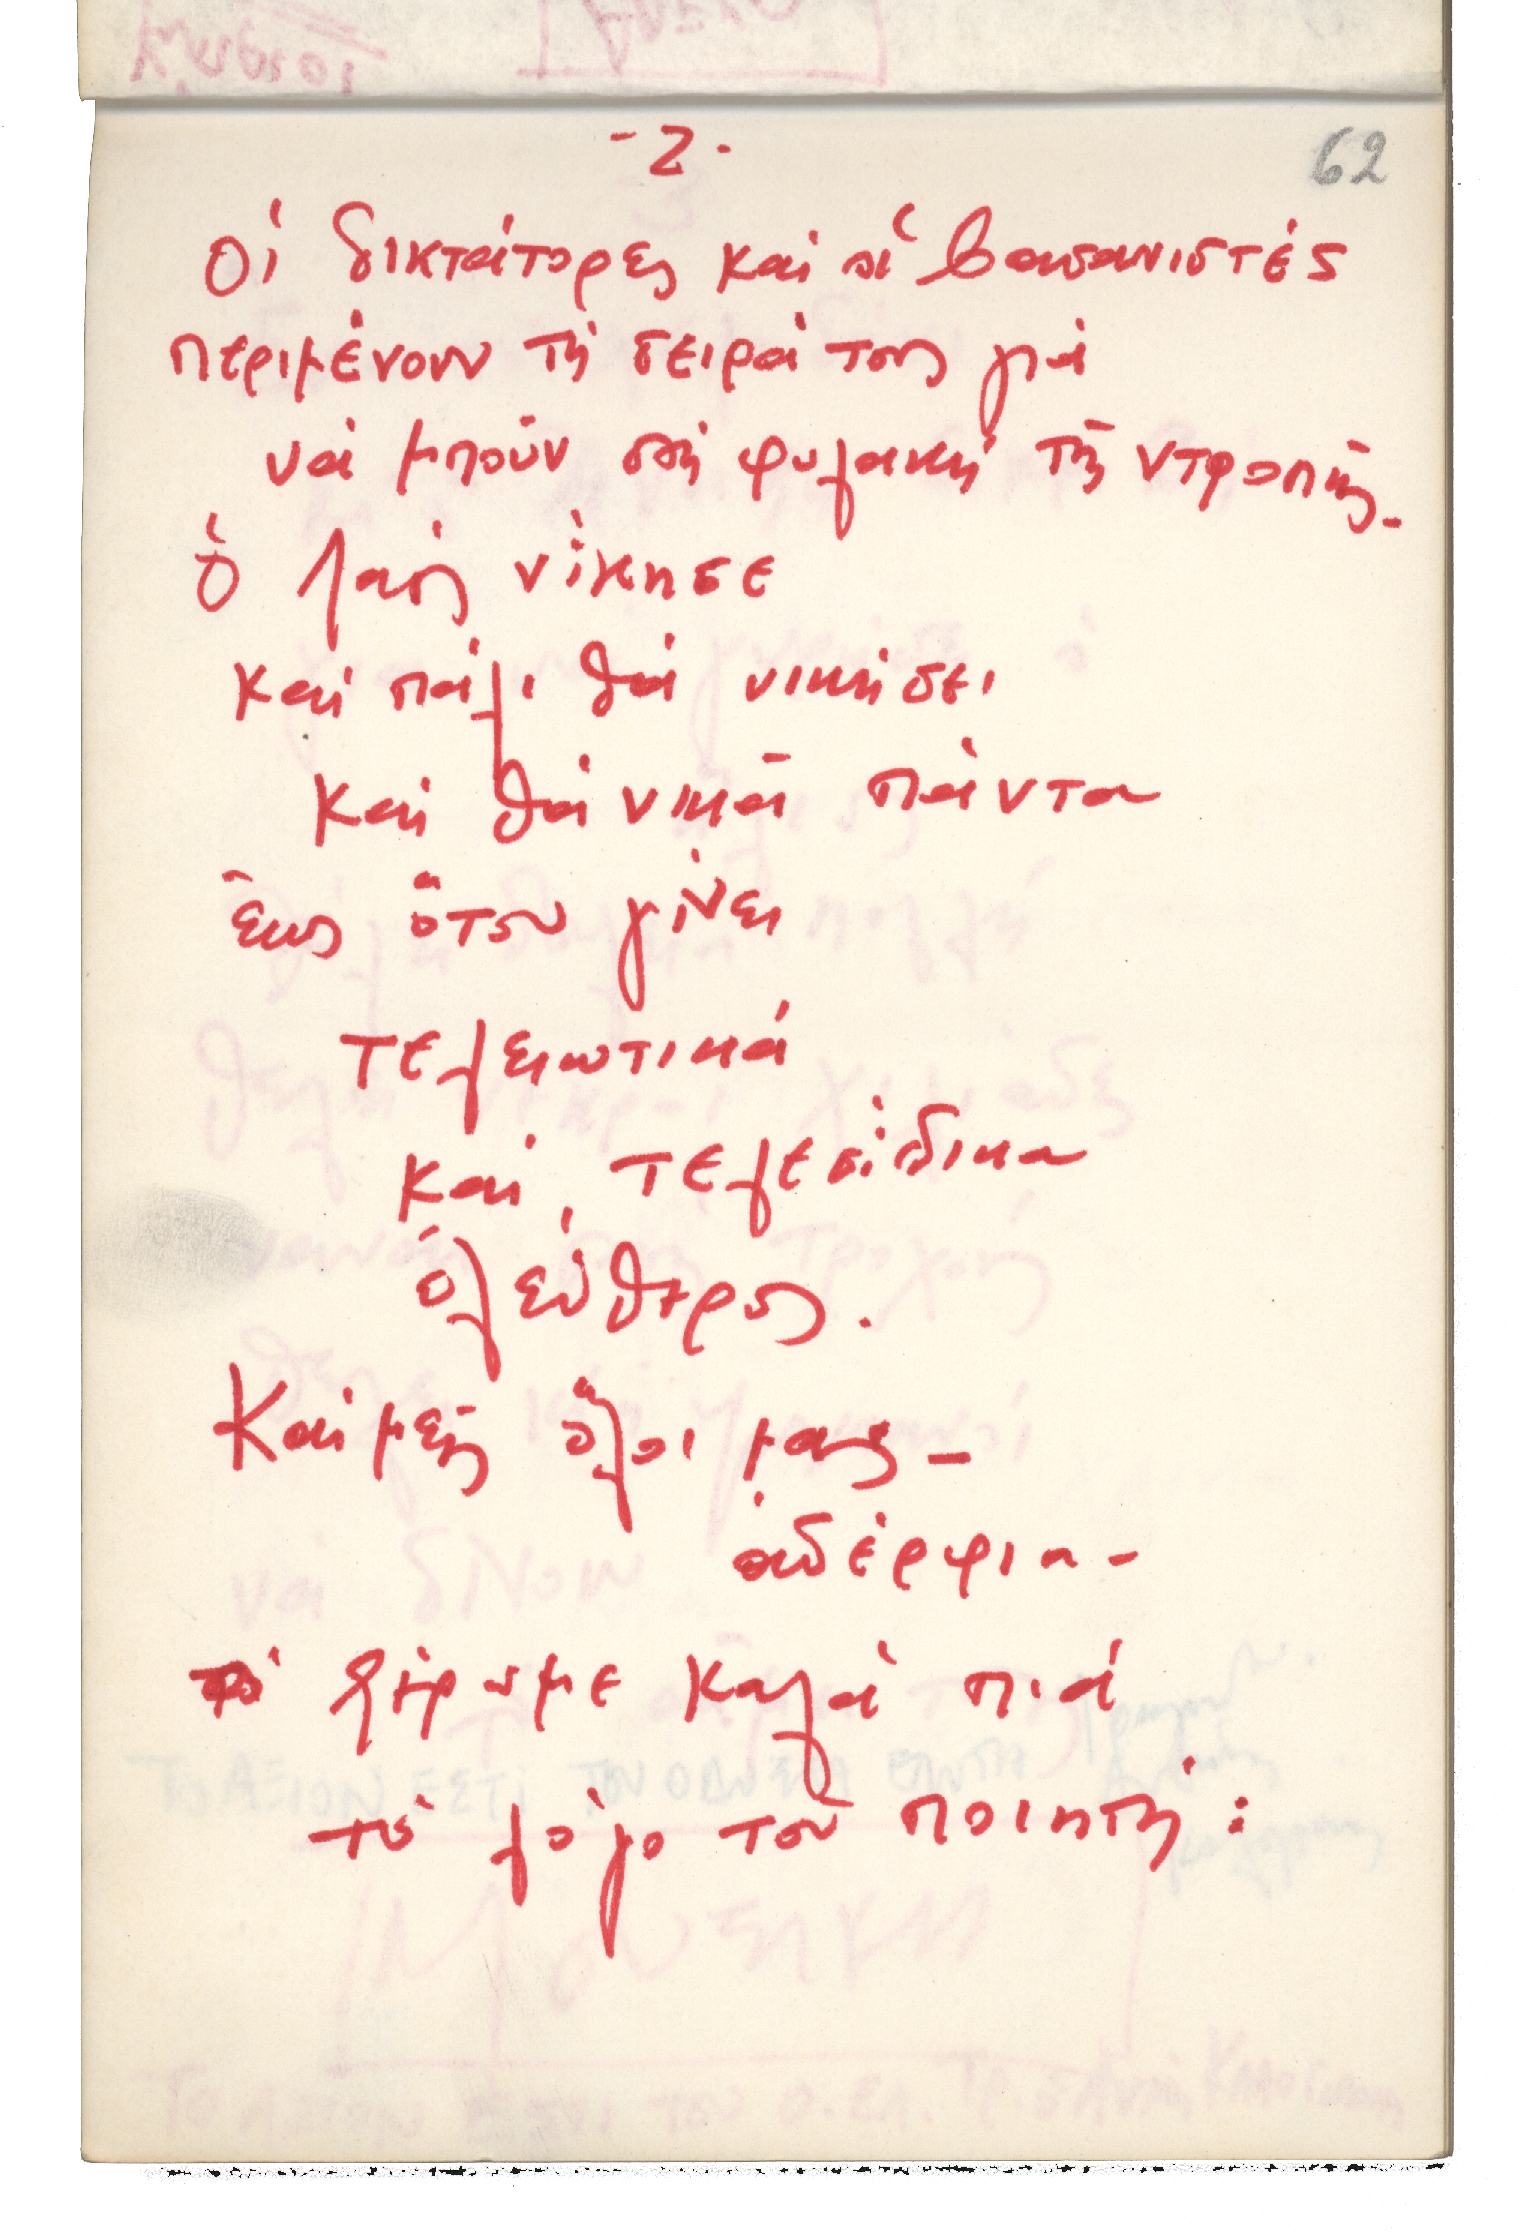 -2-
62
Οἱ δικτάτορες καὶ οἱ βασανιστές
περιμένουν τή σειρά τους γιά
νά μποῦν στή φυλακή τῆς ντροπῆς_
ὁ λαός νίκησε
καί πάλι θά νικήσει
καί θά νικᾶ πάντα
ἕως ὅτου γίνει
τελειωτικά
καί τελεσίδικα
ὁλεύθερος.
Καί μεῖς ὅλοι μας –
ἀδέρφια –
τό ξέρουμε καλά πιά
τό λόγο τοῦ ποιητῆ: